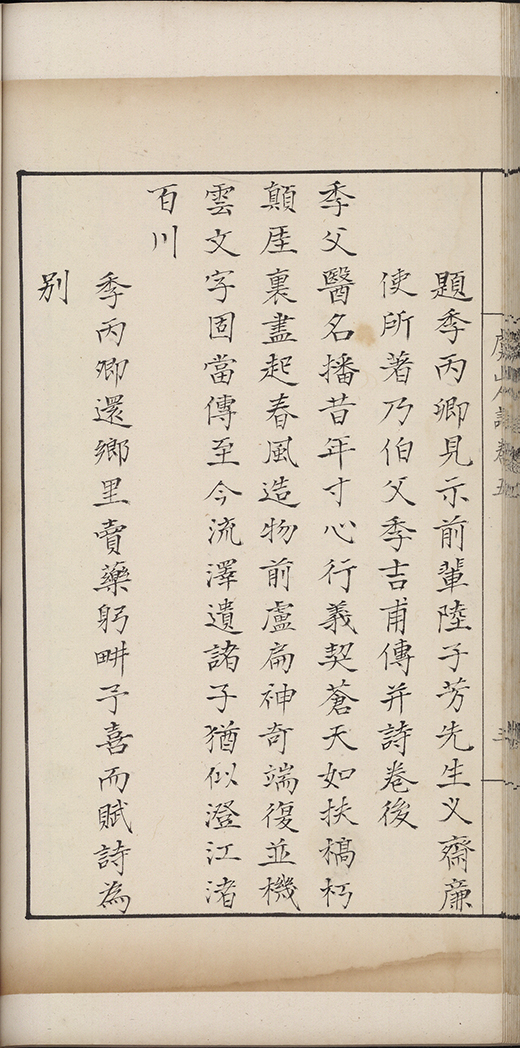 題季丙卿見示前輩陸子芳先生义齋廉
使所著乃伯父季吉甫傳并詩卷後
季父醫名播昔年寸心行義契蒼天如扶槁朽
顛厓裏盡起春風造物前盧扁神奇端復並機
雲文字固當傳至今流澤遺諸子猶似澄江渚
百川
季丙卿還鄉里賣藥躬畊予喜而賦詩為
别